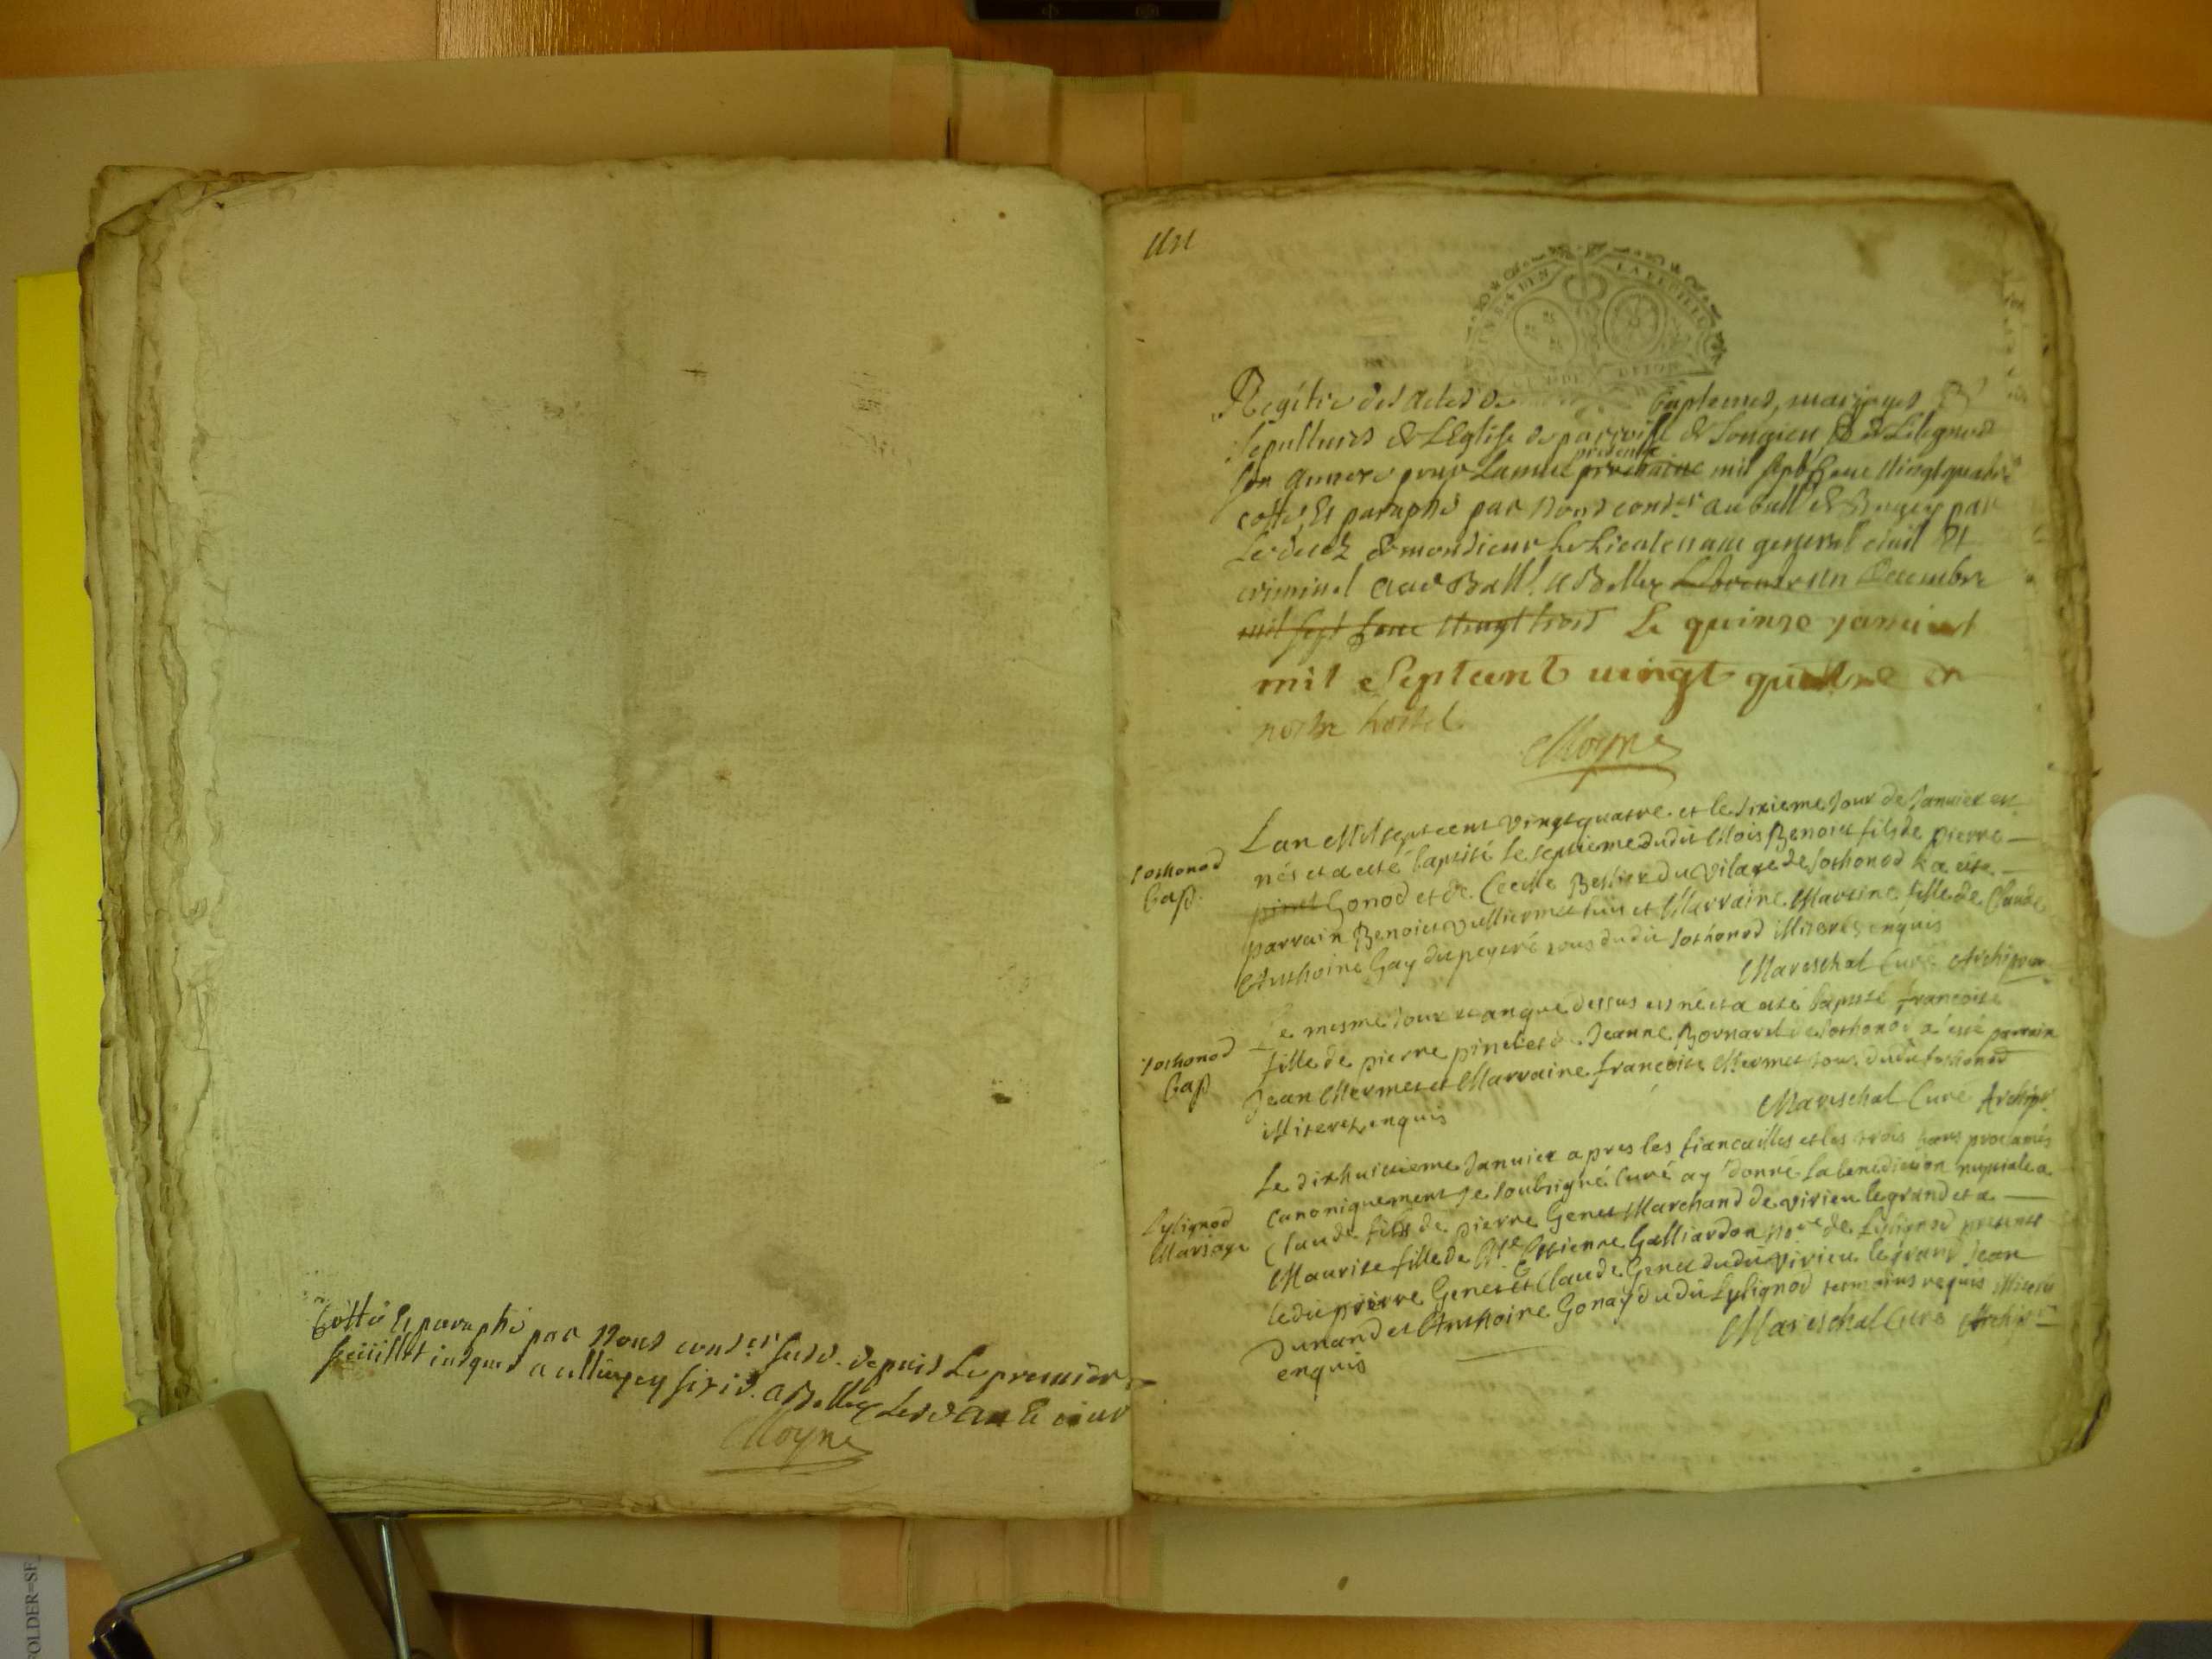 Cotté & paraphé par Nous cons.er susd. depuis Le premier
feüillet iusques a celluycy sixie. a Belley Lesd an & iour
Moyne
un
Regitre des actes de baptemes, mariages &
sepultures de L'Eglise de parroisse de Songieu & de Lilignod
son annexe pour L'année prochaine mil sept cent vingt quatre
presente
cotté & paraphé par Nous cons.er au ball. de Bugey par
Le deces de monsieur Le Lieutenant general ciuil &
criminel aud Ball. a Belley Le trente un Decembre
mil sept cent vingt trois Le quinze januier
mil Sept cent uingt quatre en
nostre hostel
Moyne
Sothonod
bap.
L'an Mil sept cent vingt quatre et le sixieme Jour de Januier est
nés et a esté baptisé le septieme dudit Mois Benoict fils de pierre
pinet Gonod et de Cecille Bessier du Vilage de Sothonod a esté
parrain Benoict Vulliermet et Marraine Maurise fille de Claude
Anthoine Gay du peyré tous dudit Sothonod illiterés enquis
Mareschal Curé Archipr.
Sothonod
bap
Le mesme Jour et an que dessus est né et a esté baptisé francoise
fille de pierre pinet et de Jeanne Bornard de Sothonod a esté parrain
Jean Mermet et Marraine francoise Mermet tous dudit Sothonod
illiterez enquis
Mareschal Curé Archipr.
Lylignod
Mariage
Le dixhuictieme Januier apres les fiancailles et les trois bans proclamés
Canoniquement Je soubsigné Curé ay donné la benediction nuptiale a
Claude fils de pierre Genet Marchand de Virieu le grand et a
Maurise fille de Me Estienne Galliardon no.re de Lylignod presents
ledit pierre Genet et Claude Genet dudit Virieu le grand Jean
Dunand et Anthoine Gonay dudit Lylignod temoins requis illiterés
enquis
Mareschal Curé Archipr.
FOLDER=SF_